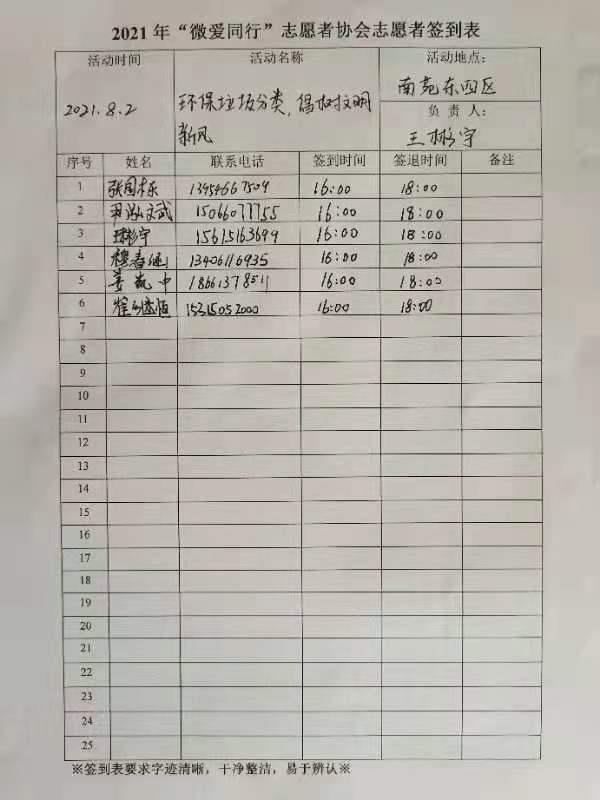 2021 年“微爱同行”志愿者协会志愿者签到表
活动时间 活动名称 活动地点:
2021.8.2 环保垃圾分类,倡树文明新风 南苑东四区
负 责 人:
王彬宇
序号 姓名 联系电话 签到时间 签退时间 备注
1 张国栋 13454667509 16:00 18:00
2 尹泓文武 15066077755 16:00 18:00
3 王彬宇 15615163699 16:00 18:00
4 穆春 13406116935 16:00 18:00
5 姜 中 18661378511 16:00 18:00
6 崔 恒 15215052000 16:00 18:00
7
8
9
10
11
12
13
14
15
16
17
18
19
20
21
22
23
24
25
※签到表要求字迹清晰，干净整洁，易于辨认※